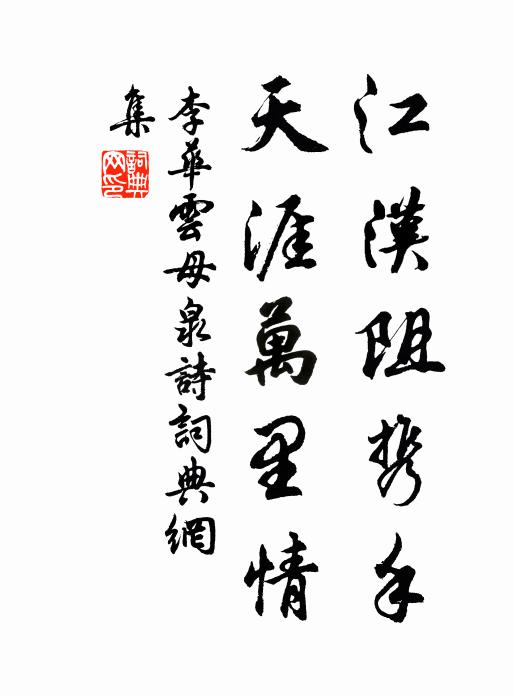 江漢阻携手
天涯萬里情
李華雲母泉詩詞典網
集
詞典
网印